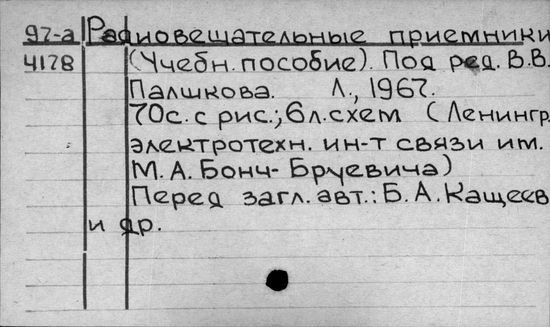 97-а Радиовещательные приемники
4178 (Учебн. пособие). Под ред. В.В.
Палшкова. Л., 1967.
70с. с рис.; 6л. схем (Ленингр.
электротехн. ин-т связи им.
М. А. Бонч-Бруевича)
Перед загл. авт.: Б. А. Кащеев
и др.